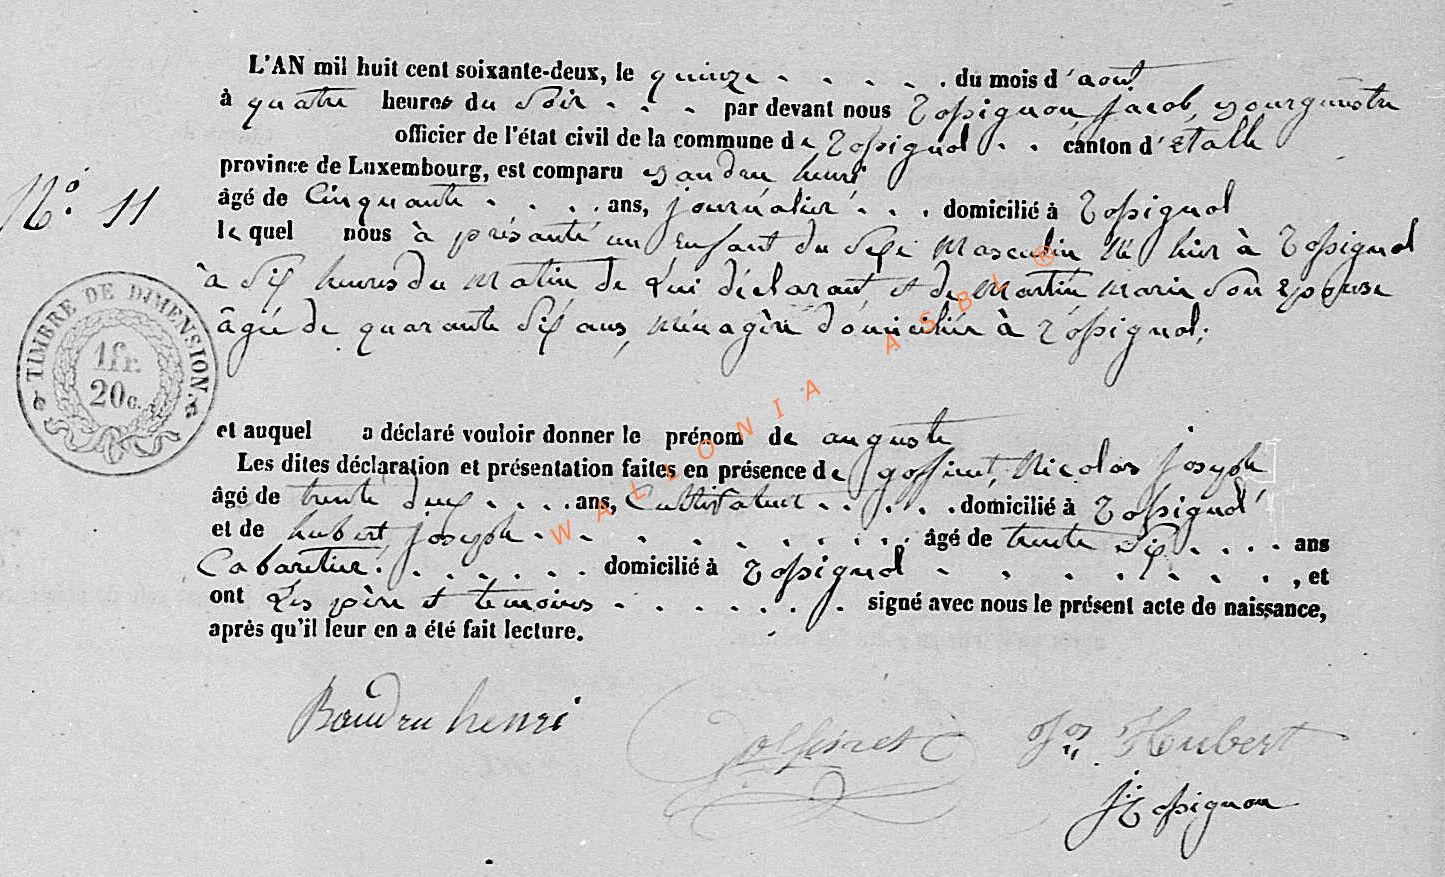 L'AN mil huit cent soixante-deux, le quinze . . . . . du mois d'aout
à quatre heures du Soir . . . par devant nous Rossignon, Jacob, Bourguestre
officier de l'état civil de la commune de Rossignol . . canton d'étalle
province de Luxembourg, est comparu Baudru henri
N.° 11
âgé de Cinquante . . . . ans, journalier . . . domicilié à Rossignol
le quel nous à présanté un Enfant du Sexe Masculin né hier à Rossignol
à Six heures du Matin de Lui déclarant et de Martin Marie Son Epouse
âgée de quarante Six ans, Ménagère domiciliée à Rossignol;
TIMBRE DE DIMENSION.
1fr.
20c.
et auquel a déclaré vouloir donner le prénom de auguste
Les dites déclaration et présentation faites en présence de goffinet, Nicolas Joseph
âgé de trente deux . . . . ans, Cultivateur . . . . . domicilié à Rossignol
et de hubert joseph . . . . . . . . . âgé de trente Six . . . . ans
Cabaretier . . . . . . domicilié à Rossignol . . . . . . , et
ont Les père et temoins . . . . . . signé avec nous le présent acte de naissance,
après qu'il leur en a été fait lecture.
Baudru henri Goffinet Jos. Hubert
J: Rossignon
WALLONIA ASBL ®